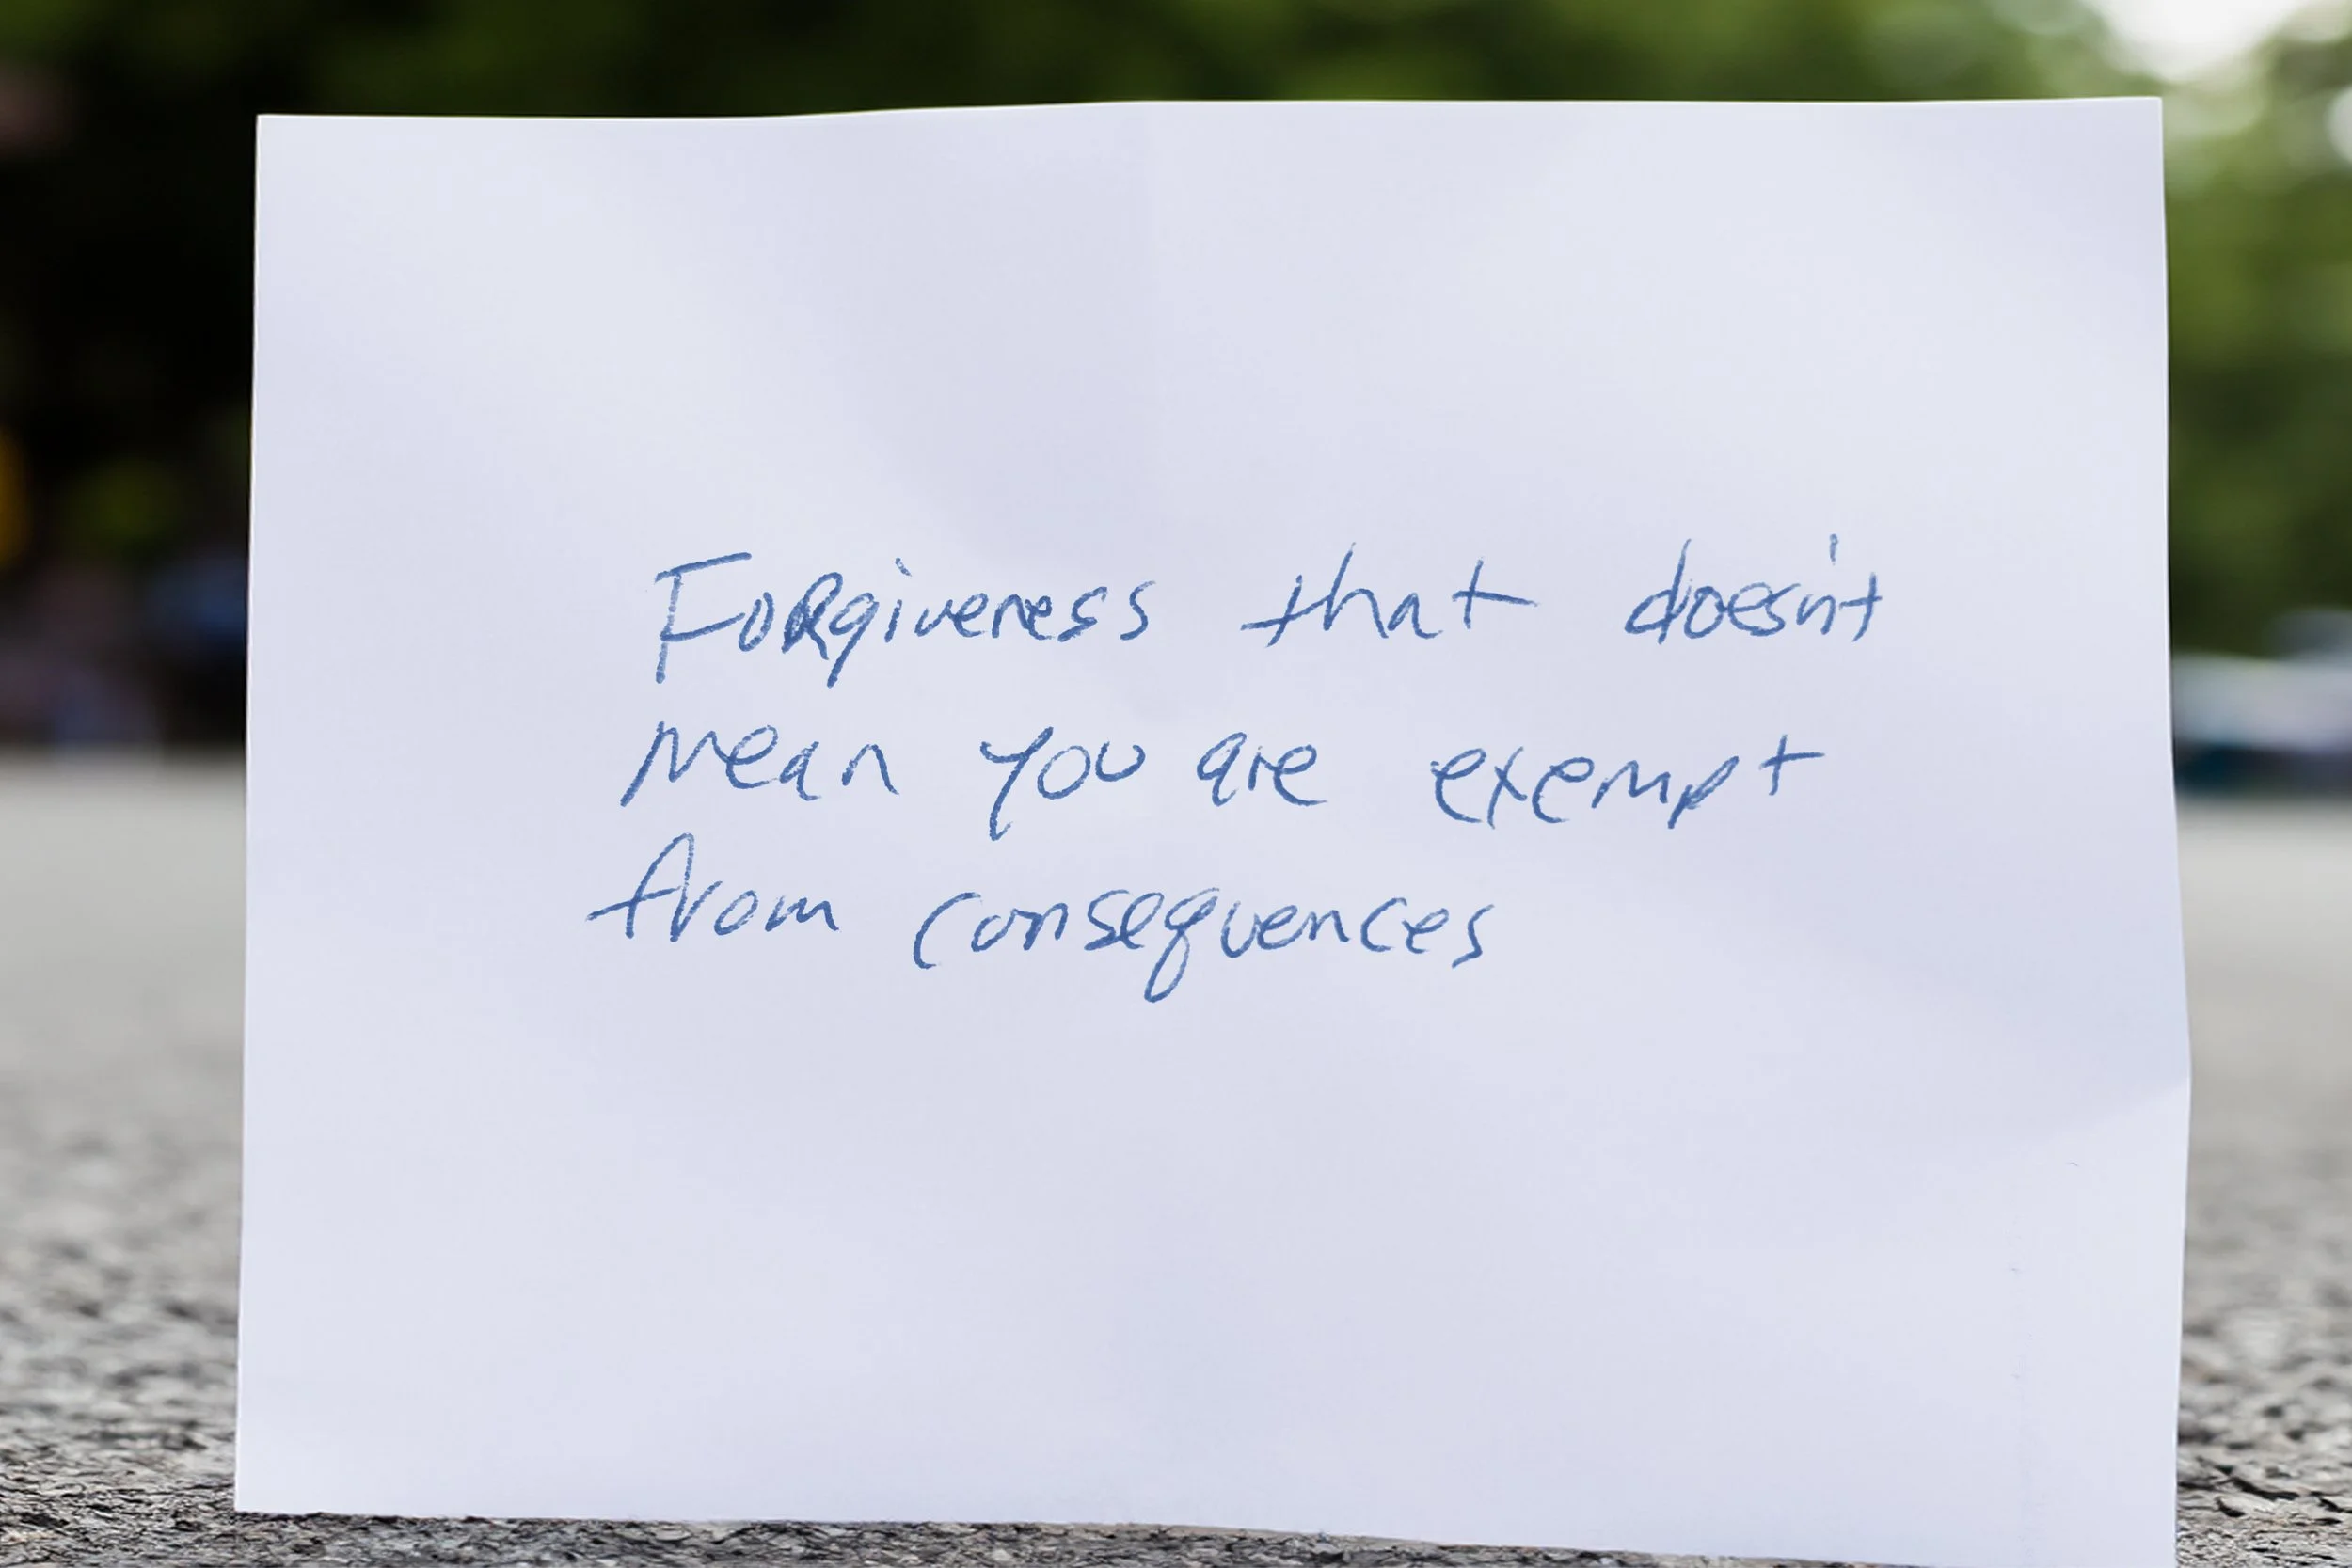 Forgiveness that doesn't
mean you are exempt
from consequences